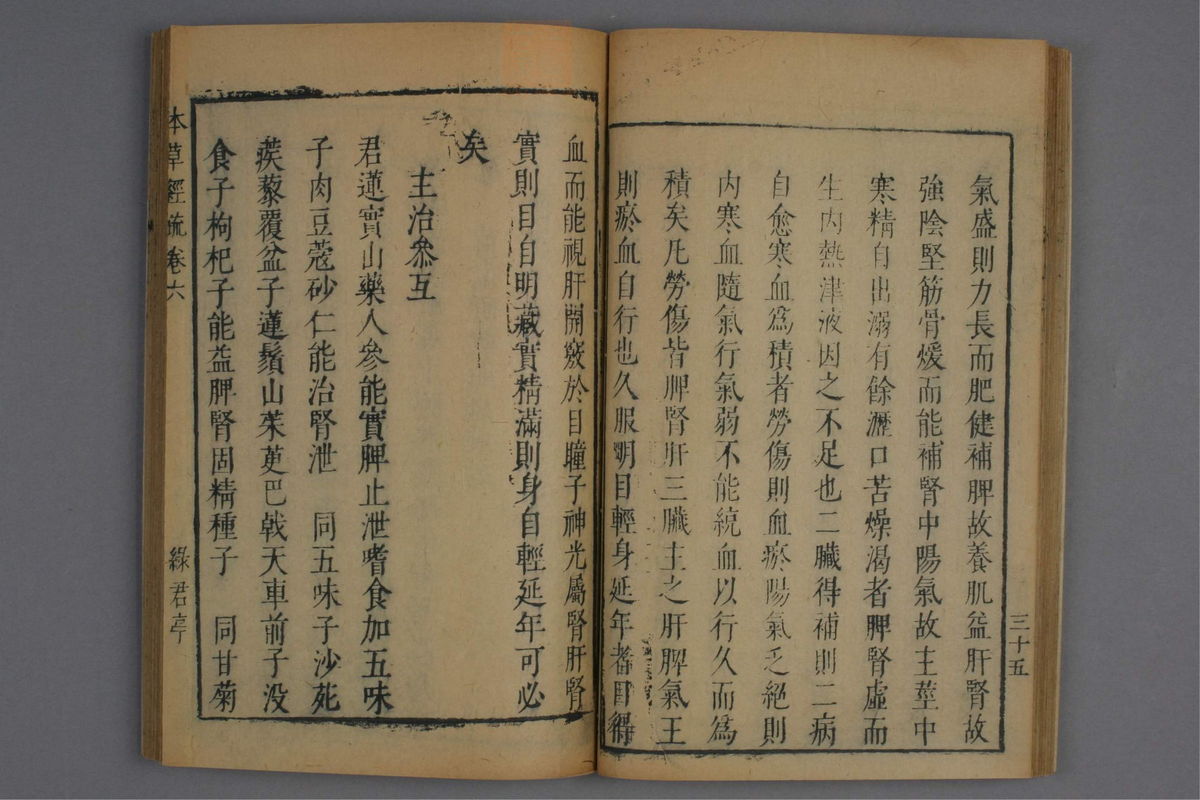 三十五
氣盛則力長而肥健補脾故養肌益肝腎故
強陰堅筋骨煖而能補腎中陽氣故主莖中
寒精自出溺有餘瀝口苦燥渴者脾腎虛而
生內熱津液因之不足也二臟得補則二病
自愈寒血爲積者勞傷則血瘀陽氣乏絕則
內寒血隨氣行氣弱不能統血以行久而爲
積矣凡勞傷皆脾腎肝三臟主之肝脾氣王
則瘀血自行也久服明目輕身延年者目得
血而能視肝開竅於目瞳子神光屬腎肝腎
實則目自明藏實精滿則身自輕延年可必
矣
主治參互
君蓮實山藥人參能實脾止泄嗜食加五味
子肉豆蔻砂仁能治腎泄 同五味子沙苑
蒺藜覆盆子蓮鬚山茱萸巴戟天車前子沒
食子枸杞子能益脾腎固精種子 同甘菊
本草經疏卷六 綠君亭